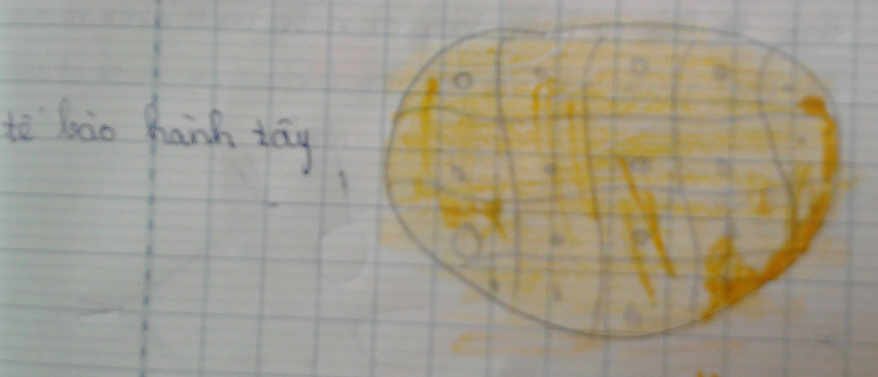 tế bào hành tây